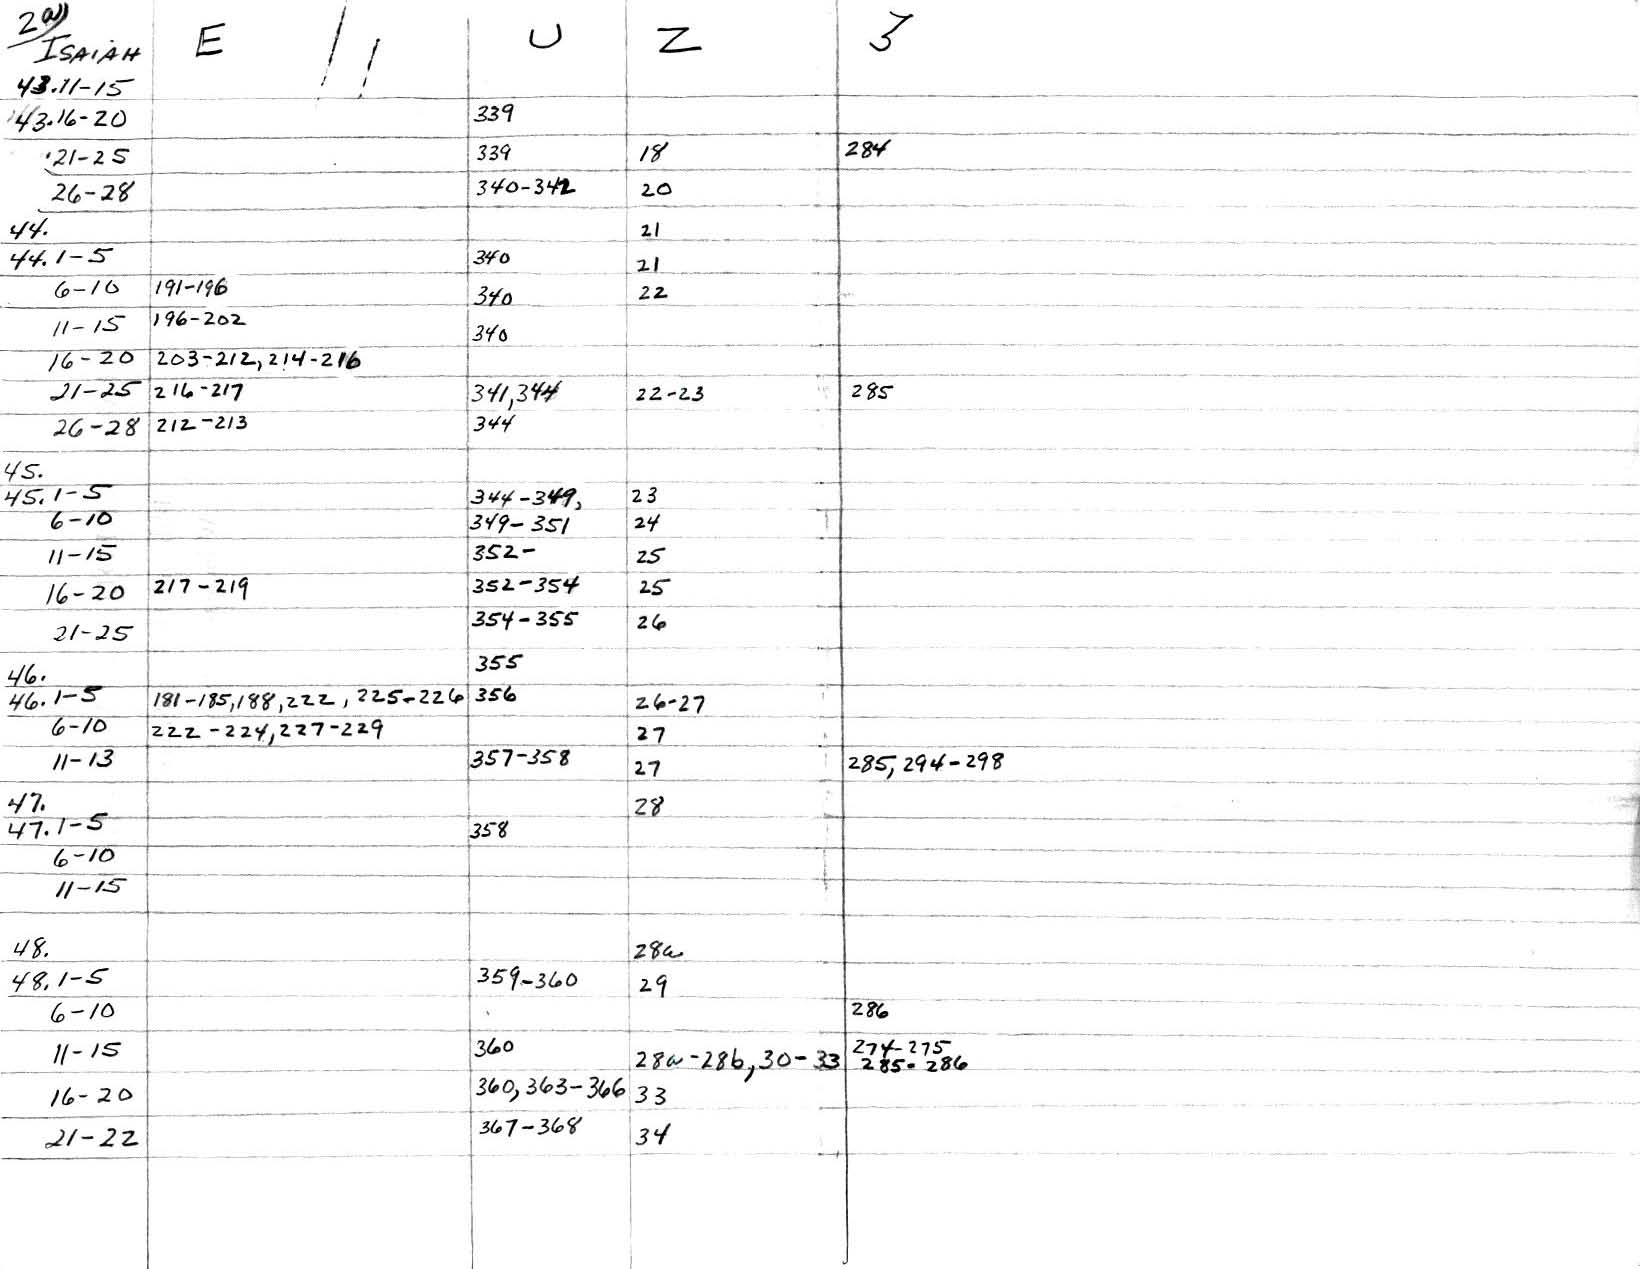 2a)
ISAIAH E U Z 3
43.11-15
43.16-20 339
21-25 339 18 284
26-28 340-342 20
44. 21
44.1-5 340 21
6-10 191-196 340 22
11-15 196-202 340
16-20 203-212, 214-216
21-25 216-217 341, 344 22-23 285
26-28 212-213 344
45.
45.1-5 344-349, 23
6-10 349-351 24
11-15 352- 25
16-20 217-219 352-354 25
21-25 354-355 26
46. 355
46.1-5 181-185, 188, 222, 225-226 356 26-27
6-10 222-224, 227-229 27
11-13 357-358 27 285, 294-298
47. 28
47.1-5 358
6-10
11-15
48. 28a
48.1-5 359-360 29
6-10 286
11-15 360 28a-28b, 30-33 274-275
285-286
16-20 360, 363-366 33
21-22 367-368 34